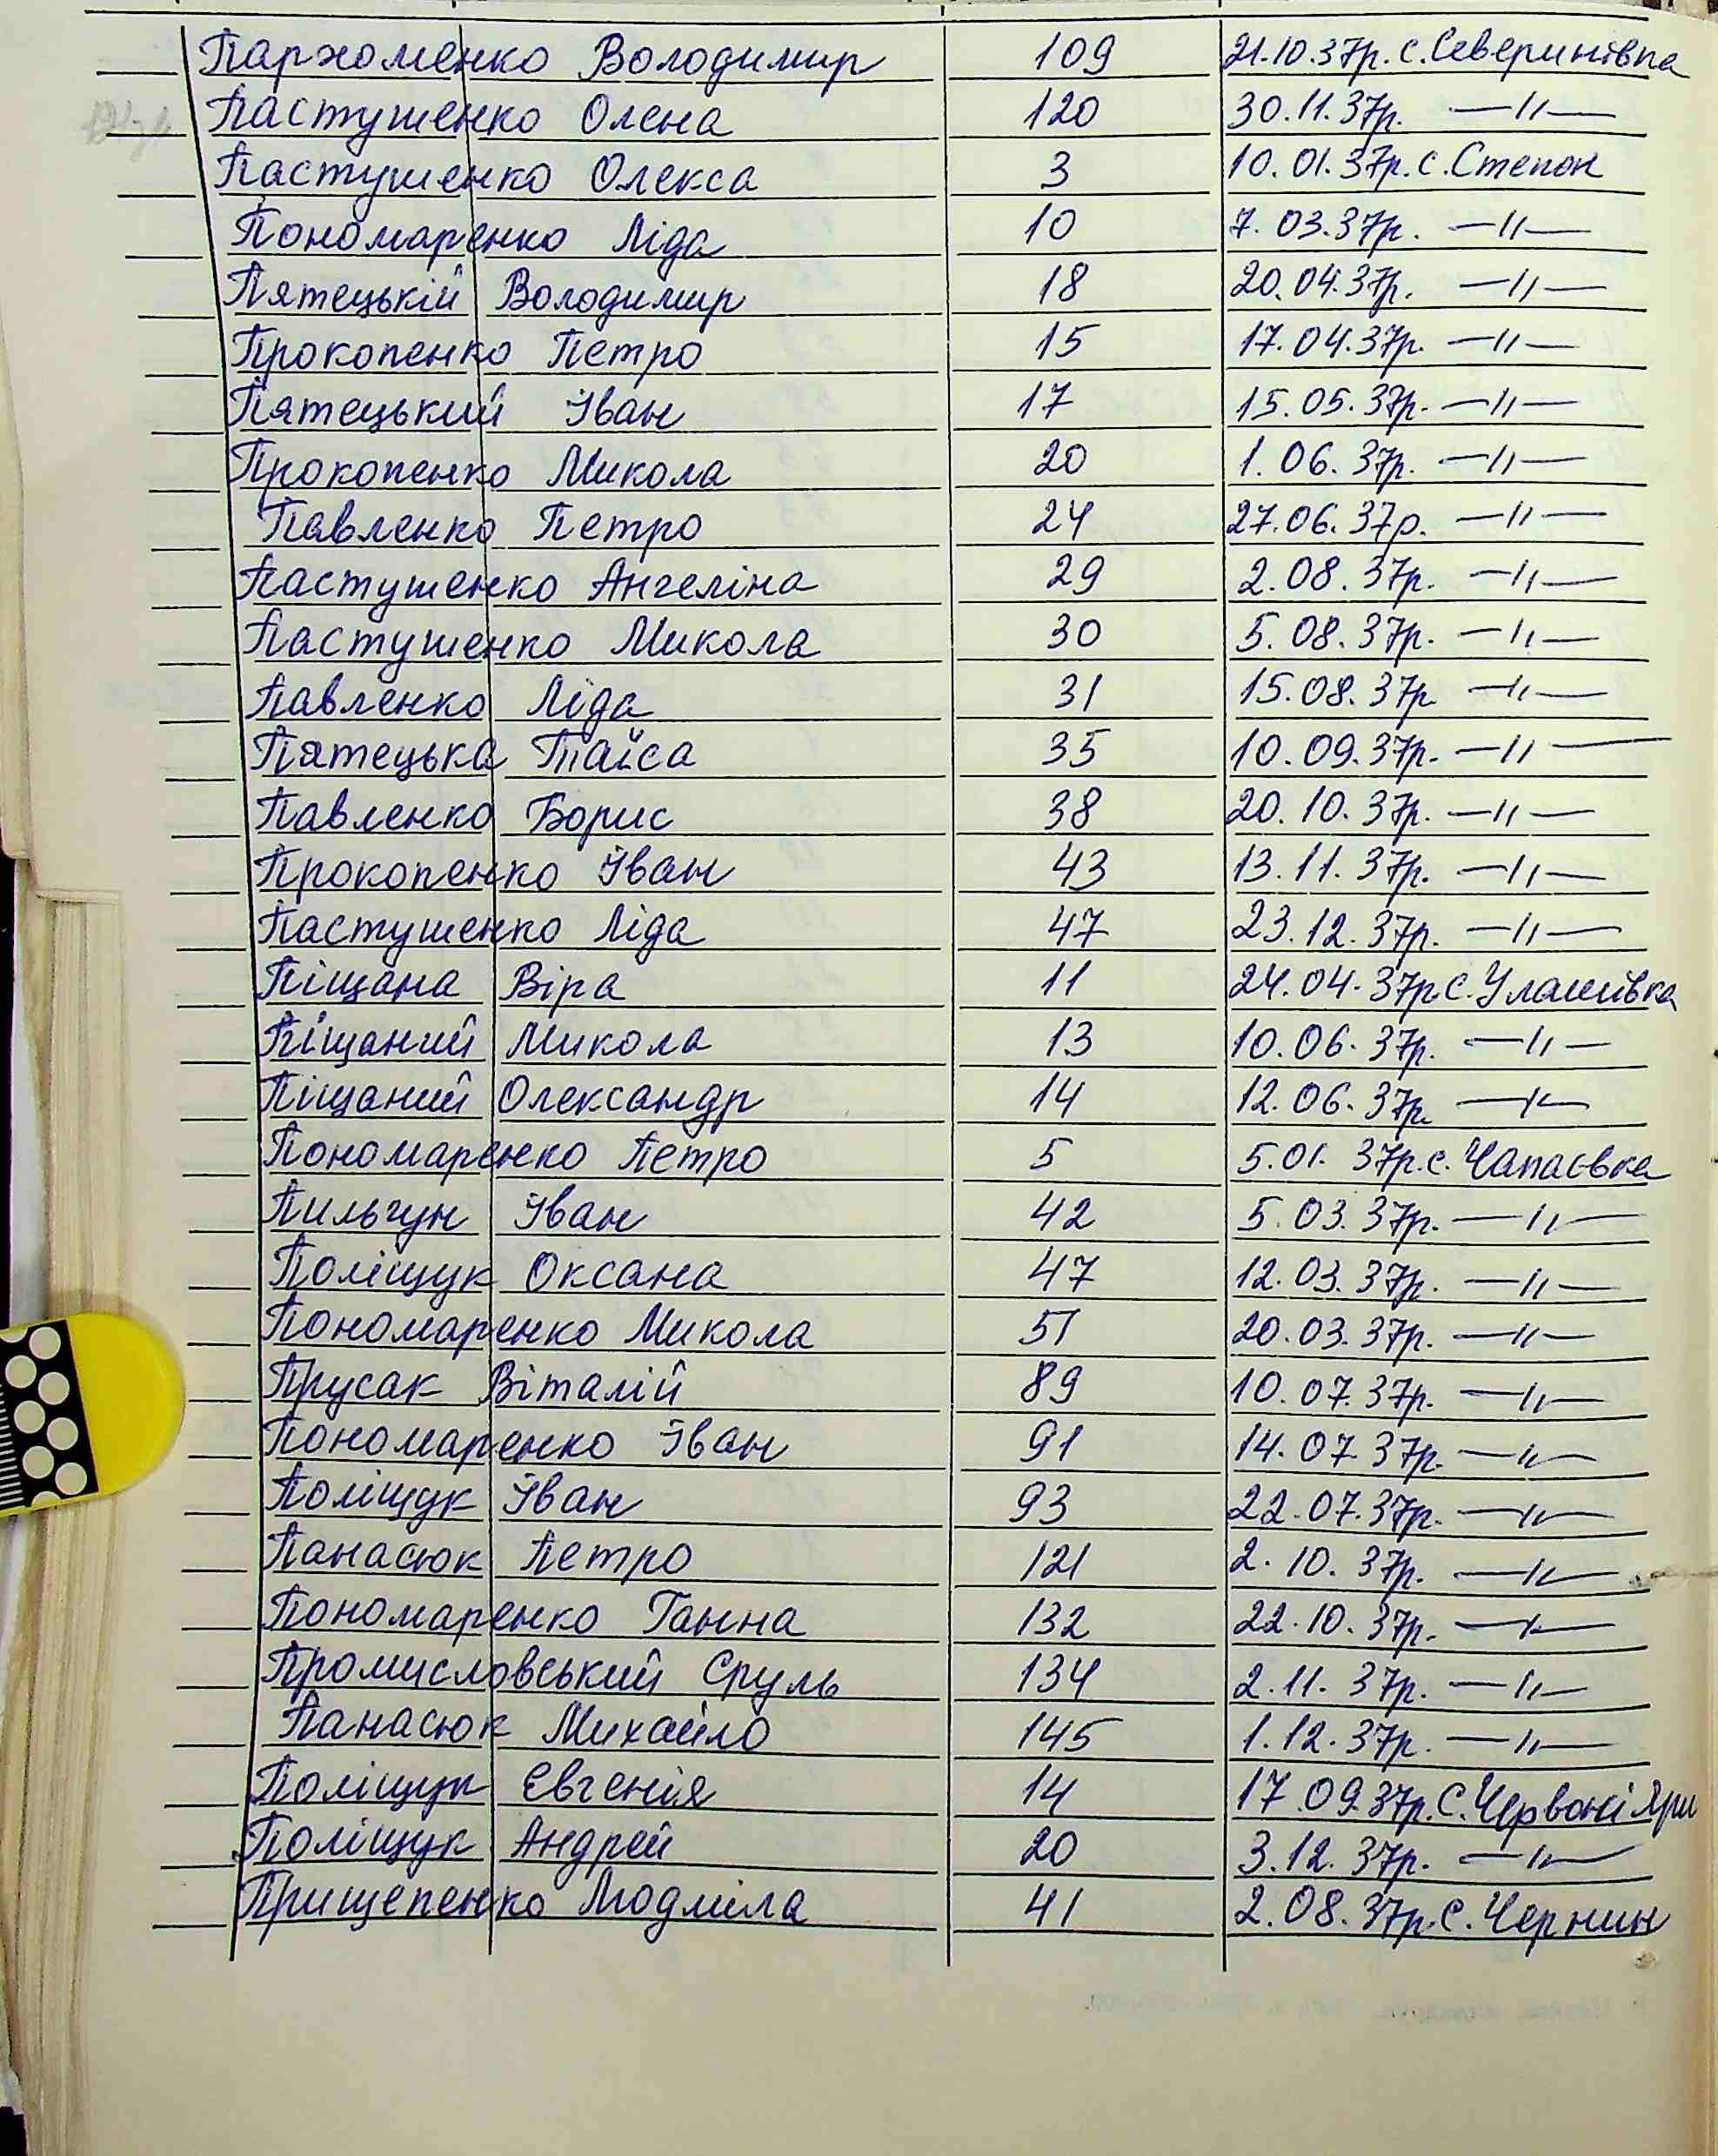 Пархоменко Володимир 109 21.10.37р. с. Северинівка
Пастушенко Олена 120 30.11.37р. —"—
Пастушенко Олекса 3 10.01.37р. с. Степок
Пономаренко Ліда 10 7.03.37р. —"—
Пятецькій Володимир 18 20.04.37р. —"—
Прокопенко Петро 15 17.04.37р. —"—
Пятецький Іван 17 15.05.37р. —"—
Прокопенко Микола 20 1.06.37р. —"—
Павленко Петро 24 27.06.37р. —"—
Пастушенко Ангеліна 29 2.08.37р. —"—
Пастушенко Микола 30 5.08.37р. —"—
Павленко Ліда 31 15.08.37р —"—
Пятецька Таїса 35 10.09.37р. —"—
Павленко Борис 38 20.10.37р. —"—
Прокопенко Іван 43 13.11.37р. —"—
Пастушенко Ліда 47 23.12.37р. —"—
Піщана Віра 11 24.04.37р с. Улашівка
Піщаний Микола 13 10.06.37р. —"—
Піщаний Олександр 14 12.06.37р. —"—
Пономаренко Петро 5 5.01.37р. с. Чапаєвка
Пильгун Іван 42 5.03.37р. —"—
Поліщук Оксана 47 12.03.37р. —"—
Пономаренко Микола 51 20.03.37р. —"—
Прусак Віталій 89 10.07.37р. —"—
Пономаренко Іван 91 14.07.37р. —"—
Поліщук Іван 93 22.07.37р. —"—
Панасюк Петро 121 2.10.37р. —"—
Пономаренко Ганна 132 22.10.37р. —"—
Промисловський Сруль 134 2.11.37р. —"—
Панасюк Михайло 145 1.12.37р. —"—
Поліщук Евгенія 14 17.09.37р. с. Червоні Яри
Поліщук Андрей 20 3.12.37р. —"—
Прищепенко Людміла 41 2.08.37р. с. Чернин